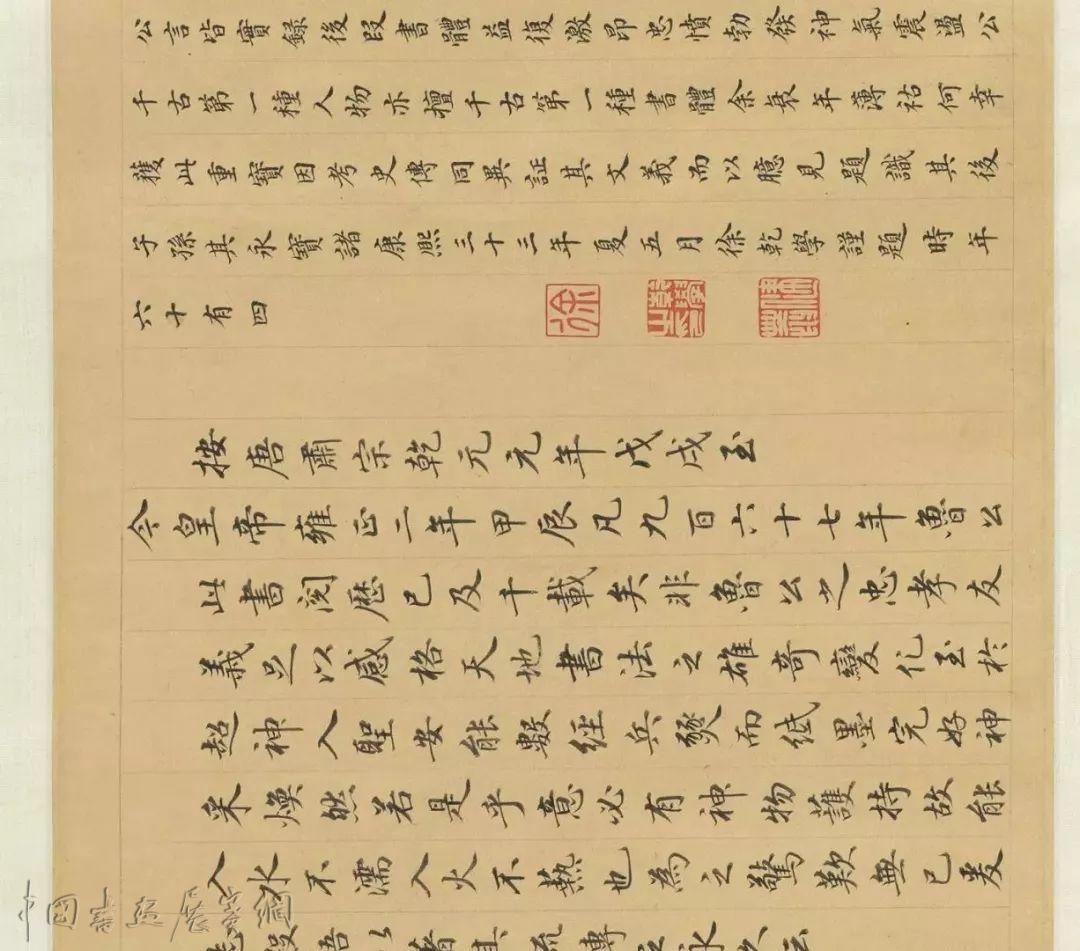 公言皆實錄後段書體益復激昂忠憤勃發神氣震盪公
千古第一種人物亦擅千古第一種書體余衰年薄祜何幸
獲此重寶因考史傳同異証其文義而以臆見題識其後
子孫其永寶諸康熙三十三年夏五月徐乾學謹題時年
六十有四
徐
按唐肅宗乾元元年戊戌至
今皇帝雍正二年甲辰凡九百六十七年魯公
此書閱歷已及千載矣非魯公之忠孝友
義足以感格天地書法之雄奇變化至於
超神入聖安能數經兵燹而紙墨完好神
采煥然若是乎意必有神物護持故能
入水不濡入火不爇也為之驚歎無已爰
以著其流傳之永久云